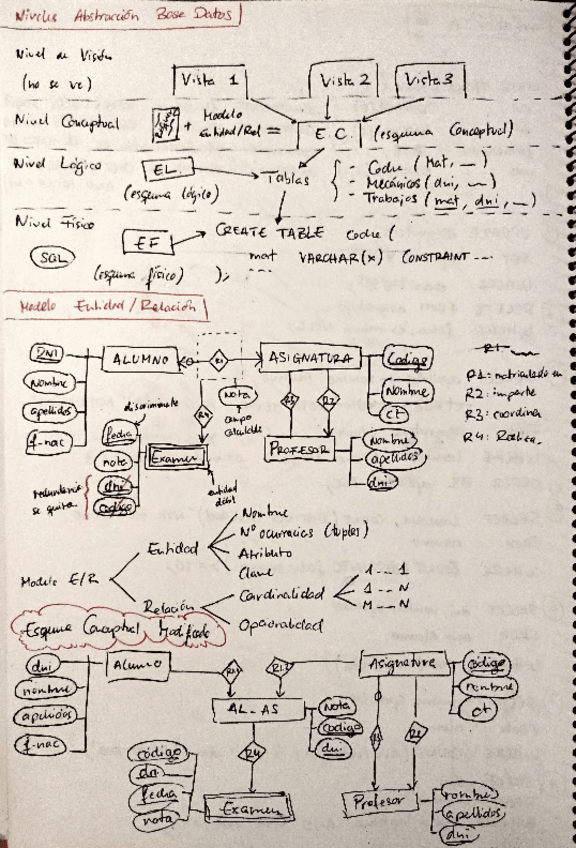 Niveles Abstracción Base Datos
Nivel de Visión
(no se ve)
Vista 1
Vista 2
Vista 3
Nivel Conceptual
+ Modelo
Entidad/Rel =
E.C.
(esquema Conceptual)
Nivel Lógico
EL.
(esquema lógico)
Tablas
- Coche (Mat, ...)
- Mecánicos (dni, ...)
- Trabajos (mat, dni, ...)
Nivel Físico
SQL
EF
(esquema físico)
CREATE TABLE coche (
mat VARCHAR(x) CONSTRAINT ...
);
Modelo Entidad/Relación
DNI
Nombre
apellidos
f-nac
ALUMNO
R1
ASIGNATURA
Código
Nombre
ct
R1: matriculado en
R2: imparte
R3: coordina
R4: Realiza
nota
campo calculable
R4
R3
R2
discriminante
fecha
nota
dni
codigo
redundancia
se quita
Examen
entidad
débil
PROFESOR
nombre
apellidos
dni
Modelo E/R
Entidad
Nombre
Nº ocurrencias (tuplas)
Atributo
Clave
Relación
Cardinalidad
1 .. 1
1 .. N
M .. N
Opcionalidad
Esquema Conceptual Modificado
dni
nombre
apellidos
f-nac
Alumno
Asignatura
código
nombre
ct
AL_AS
Nota
codigo
dni
R4
R2
código
dni
fecha
nota
Examen
Profesor
nombre
apellidos
dni